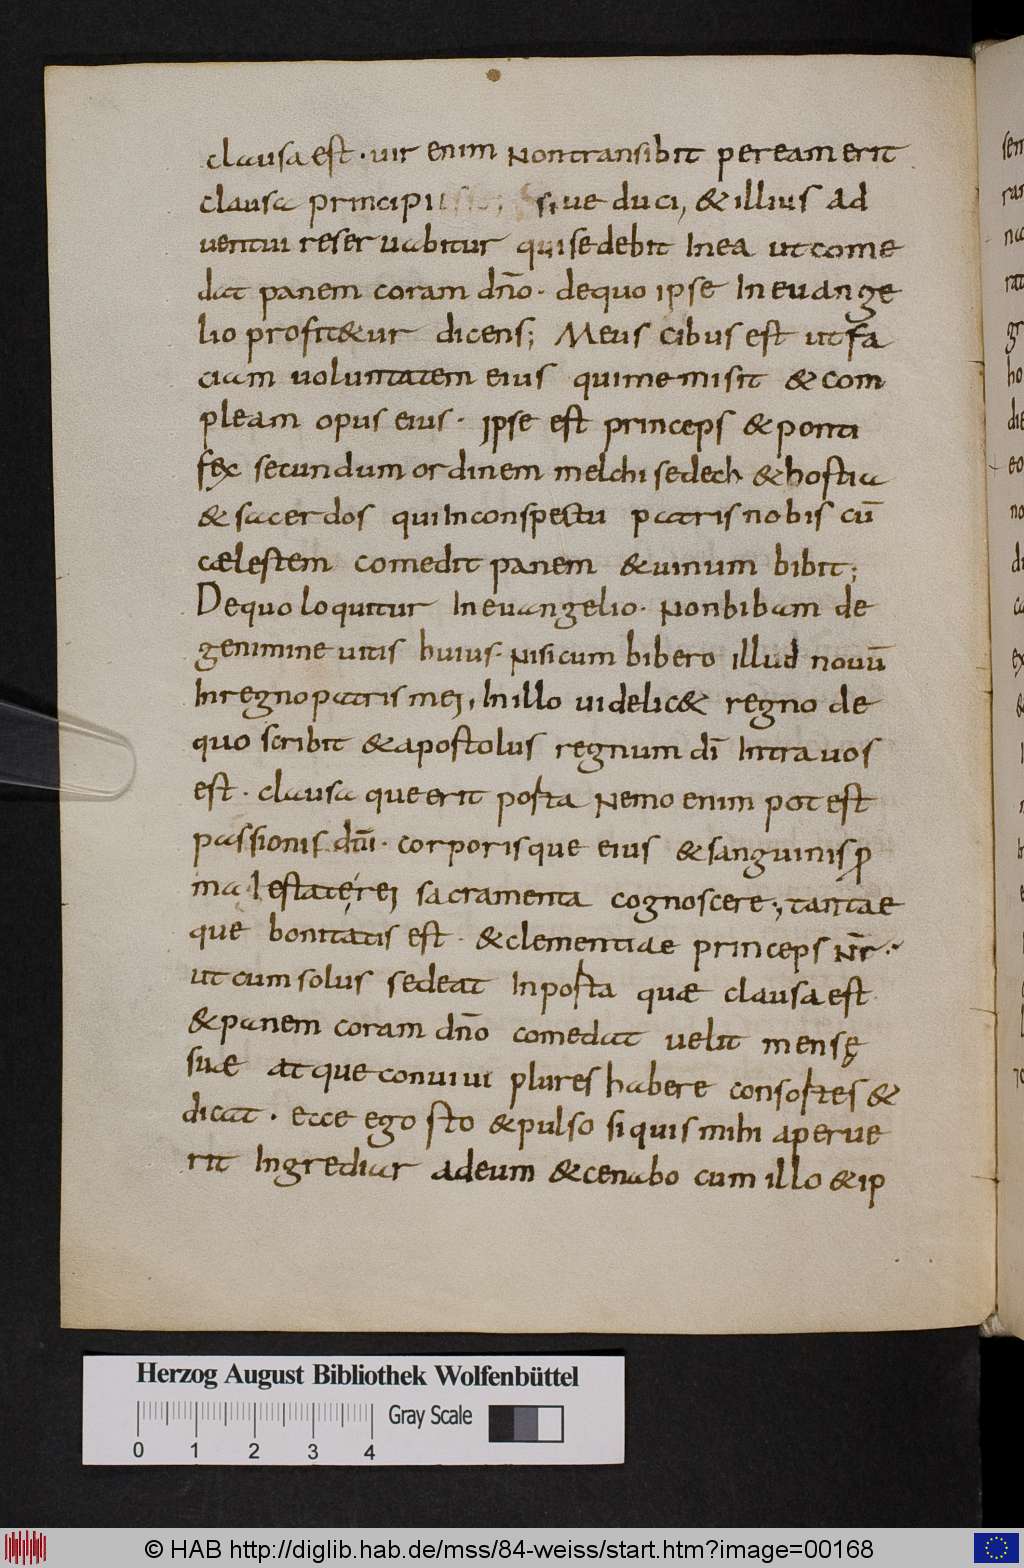 clausa est · uir enim Non transibit per eam erit
clausa principi siue duci, & illius ad
uentui reseruabitur qui sedebit In ea ut come
dat panem coram dn̄o · de quo ipse In euange
lio profit&ur dicens; Meus cibus est ut fa
ciam uoluntatem eius qui me misit & com
pleam opus eius · ipse est princeps & ponti
fex secundum ordinem melchisedech & hostia
& sacerdos qui In conspectu patris nobis cū
cælestem comedit panem & uinum bibit;
De quo loquitur In euangelio · Non bibam de
genimine uitis huius · Nisi cum bibero illud nouū
In regno patris mei, In illo uidelic& regno de
quo scribit & apostolus regnum dī Intra uos
est · clausa que erit porta Nemo enim potest
passionis dn̄i · corporisque eius & sanguinis p̄
maiestate rei sacramenta cognoscere; tantae
que bonitatis est · & clementiae princeps Nr̄ ·
ut cum solus sedeat In porta quæ clausa est
& panem coram dn̄o comedat uelit mensę
suæ atque conuiui plures habere consortes &
dicat · ecce ego sto & pulso si quis mihi aperue
rit Ingrediar ad eum & cenabo cum illo & ip
sem
Herzog August Bibliothek Wolfenbüttel
Gray Scale
0 1 2 3 4
© HAB http://diglib.hab.de/mss/84-weiss/start.htm?image=00168